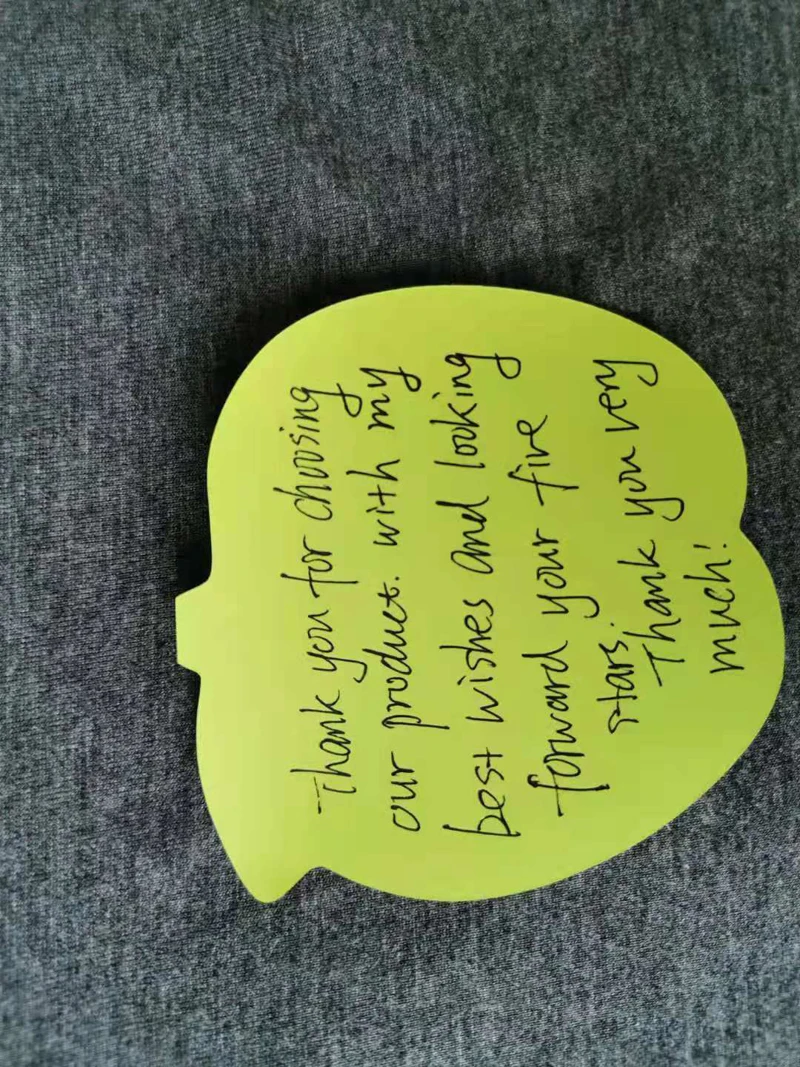 Thank you for choosing
our product. with my
best wishes and looking
forward your five
stars.
Thank you very
much!